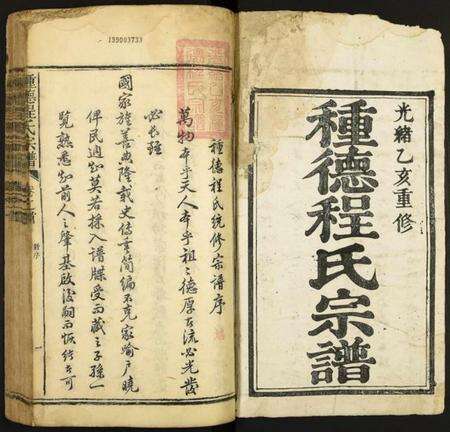 光緒乙亥重修
種德程氏宗譜
種德程氏統修宗譜序
萬物本乎天人本乎祖之德厚者流必光發
必長殖
國家旌善典隆載史傳重簡編不克家喻戶曉
俾民週知莫若採入譜牒受而藏之子孫一
覽熟悉知前人之肇基啟後嗣而恢結者可
種德程氏宗譜
199003733